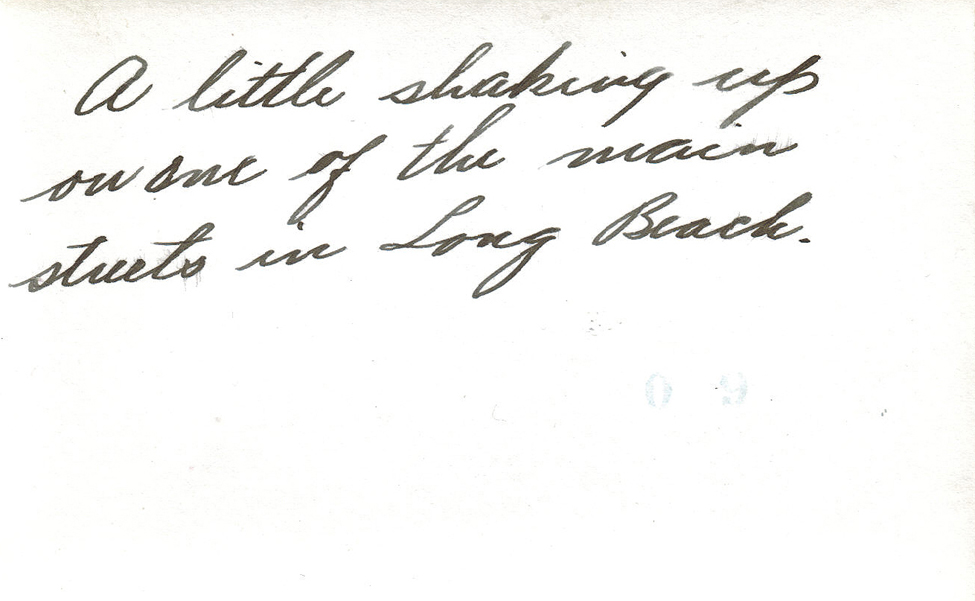 A little shaking up
on one of the main
streets in Long Beach.